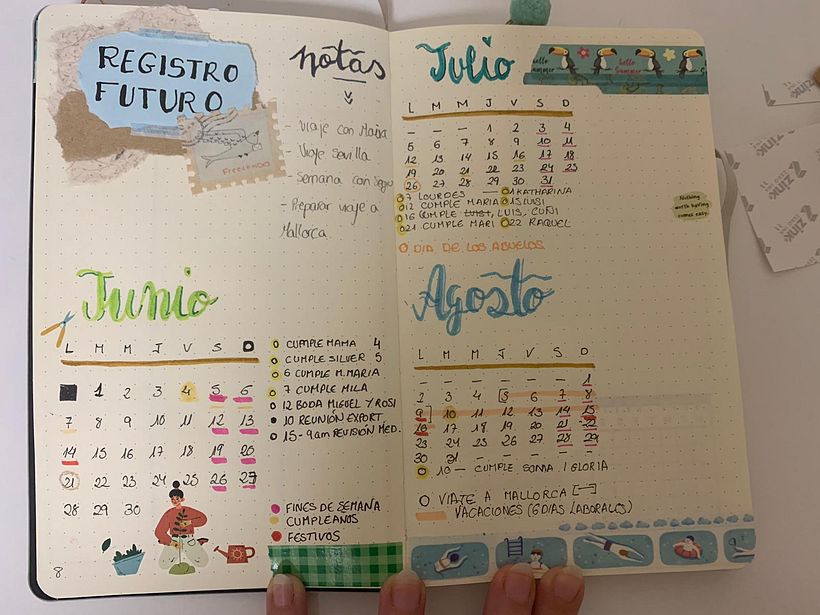 REGISTRO
FUTURO
Freedoo
notas
- Viaje con Maria
Viaje Sevilla
- Semana con
- Preparar viaje a
Mallorca.
Junio
L M M J V S D
1 2 3 4 5 6
7 8 9 10 11 12 13
14 15 16 17 18 19 20
21 22 23 24 25 26 27
28 29 30
CUMPLE MAMA 4
CUMPLE SILVER 5
6 CUMPLE M.MARIA
7 CUMPLE MILA
12 BODA MIGUEL Y ROSI
10 REUNIÓN EXPORT.
15 - 9am REVISIÓN MED.
FINES DE SEMANA
CUMPLEAÑOS
FESTIVOS
8
Julio
hello
Summer
hello
Summer
L M M J V S D
- - - 1 2 3 4
5 6 7 8 9 10 11
12 13 14 15 16 17 18
19 20 21 22 23 24 25
26 27 28 29 30 31
7 LOURDES 1 KATHARINA
12 CUMPLE MARIA 15 LUISI
16 CUMPLE LUISI, LUIS, CUÑI
21 CUMPLE MARI 22 RAQUEL
DIA DE LOS ABUELOS
Nothing
worth having
comes easy.
Agosto
L M M J V S D
- - - - - - 1
2 3 4 5 6 7 8
9 10 11 12 13 14 15
16 17 18 19 20 21 22
23 24 25 26 27 28 29
30 31 - - - - -
10 - CUMPLE SONIA / GLORIA
VIAJE A MALLORCA [—]
VACACIONES (6 DIAS LABORALES)
9
ZINK
ZINK